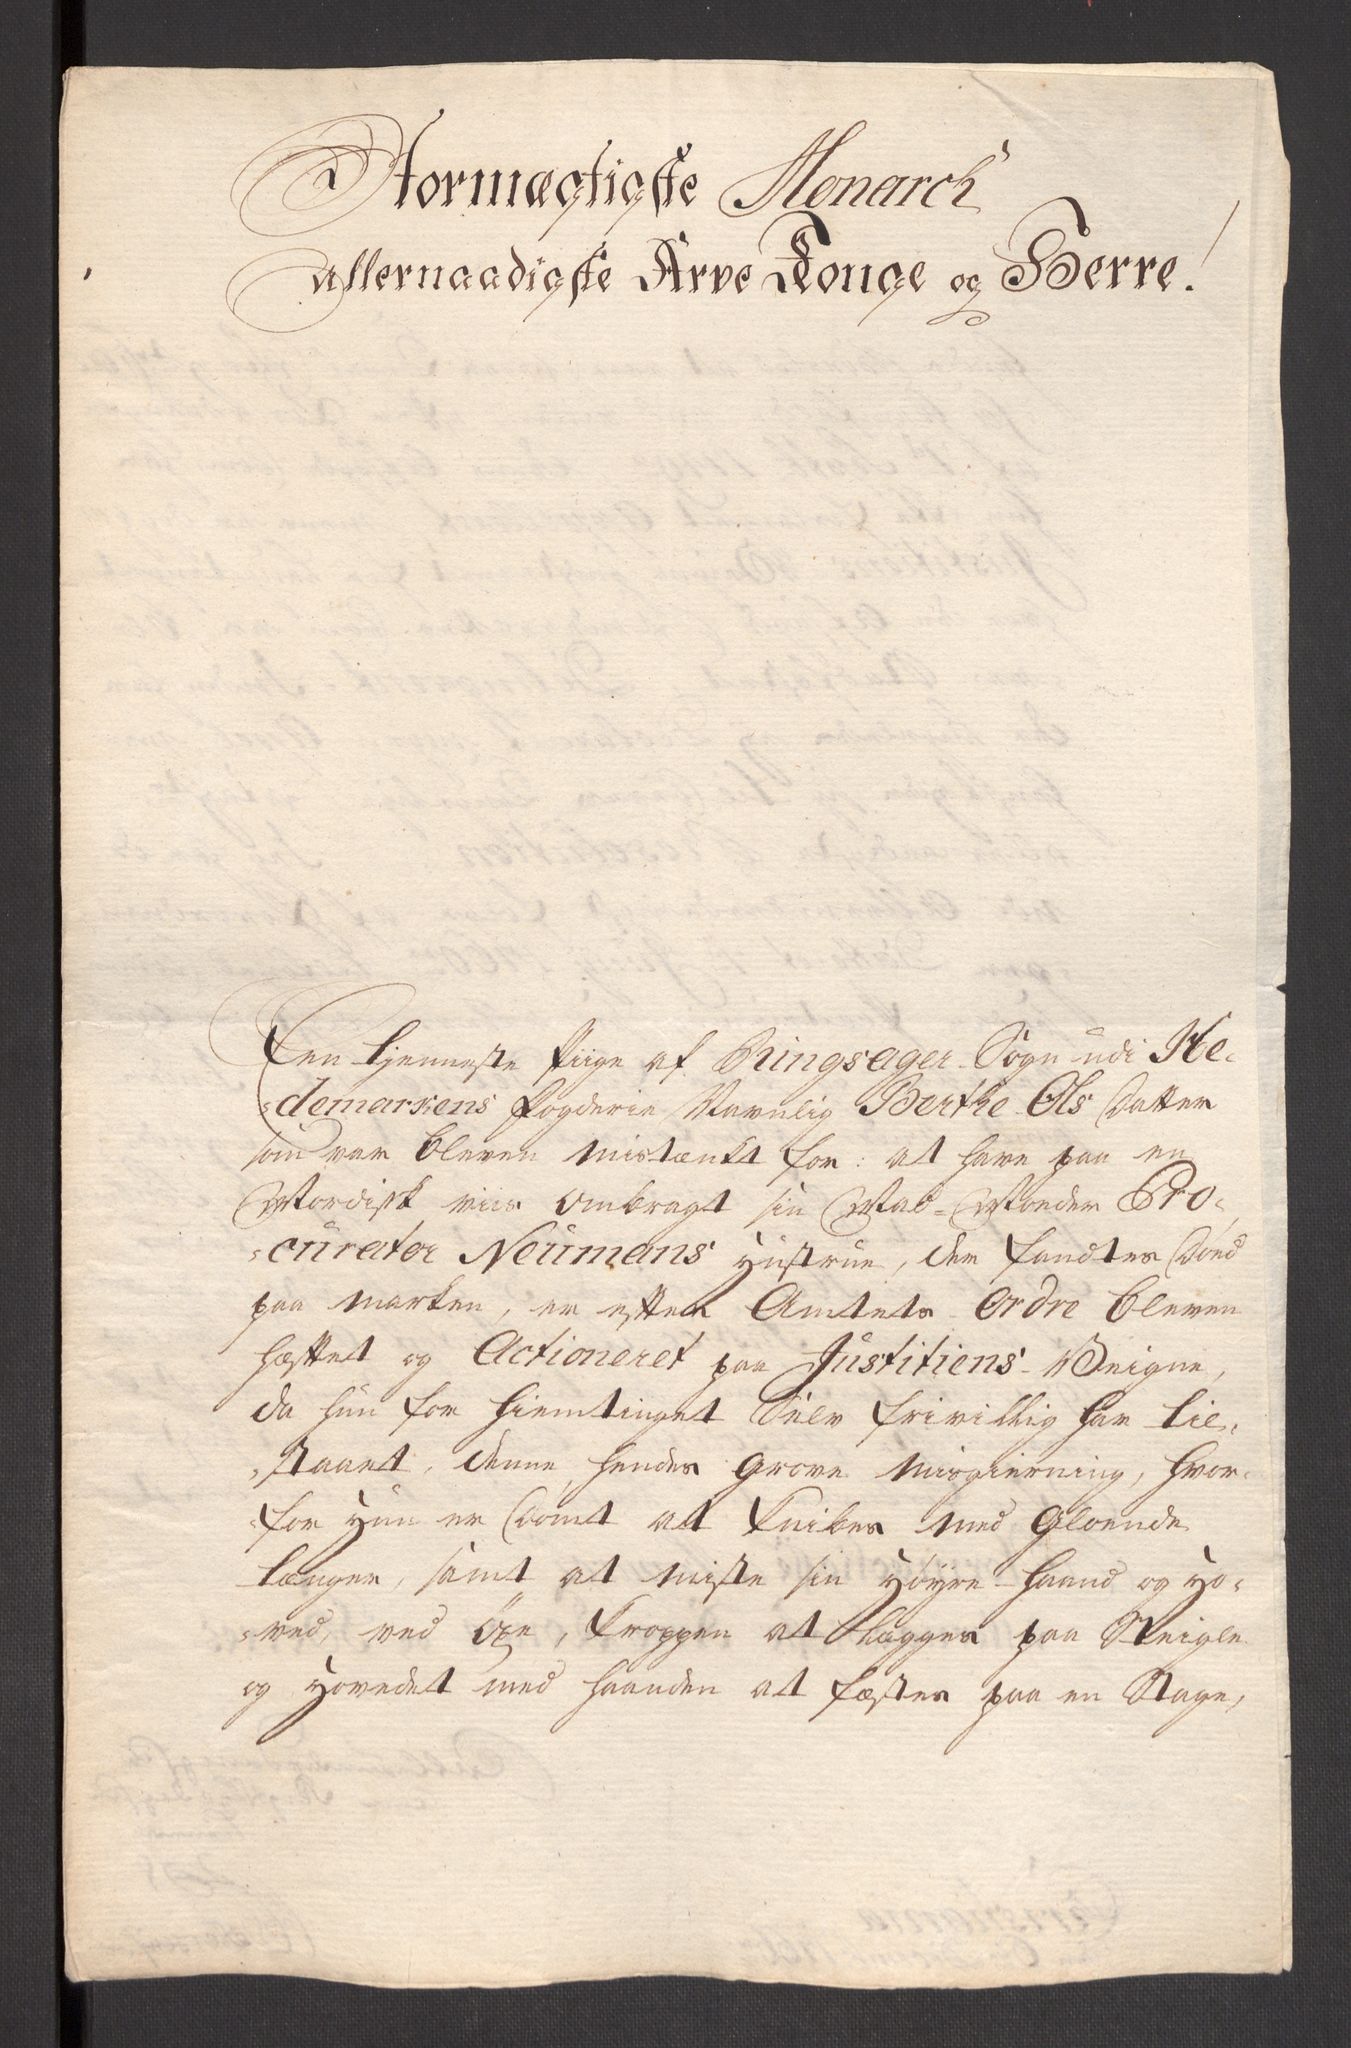 Stormægtigste Monarch
Allernaadigste Arve Konge og Herre!
Een tjenneste Piige af Ringsager Sogn udi He-
-demarkens Fogderie Navnlig Berthe Ols Datter
som var bleven mistænkt for: at have paa en
Mordisk viis ombragt sin Mad-Moder Pro-
-curator Neümans Hustrue, der fandtes Død
paa Marken, er efter Amtets Ordre bleven
hæftet og Actioneret paa Justitiens Veigne,
da hun for Hiemtinget Selv frivillig har til-
-staaet, denne hendes grove Misgierning, hvor-
-for Hun er Dømt at knibes med Gloende
tænger, samt at miste sin Høyre-haand og Ho-
-ved, ved Öxe, kroppen at lægges paa Steigle
og Hovedet med haanden at fæstes paa en Stage,